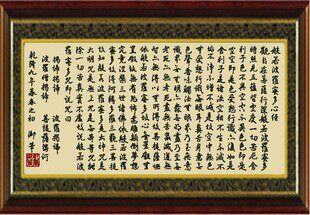 般若波羅蜜多心經
觀自在菩薩行深般若波羅蜜多
時照見五蘊皆空度一切苦厄舍
利子色不異空空不異色色即是
空空即是色受想行識亦復如是
舍利子是諸法空相不生不滅不
垢不淨不增不減是故空中無色
無受想行識無眼耳鼻舌身意無
色聲香味觸法無眼界乃至無意
識界無無明亦無無明盡乃至無
老死亦無老死盡無苦集滅道無
智亦無得以無所得故菩提薩埵
依般若波羅蜜多故心無罣礙無
罣礙故無有恐怖遠離顛倒夢想
究竟涅槃三世諸佛依般若波羅
蜜多故得阿耨多羅三藐三菩提
故知般若波羅蜜多是大神咒是
大明咒是無上咒是無等等咒能
除一切苦真實不虛故說般若波
羅蜜多咒即說咒曰
揭諦揭諦 波羅揭諦
波羅僧揭諦 菩提薩婆訶
乾隆九年春 初 御筆